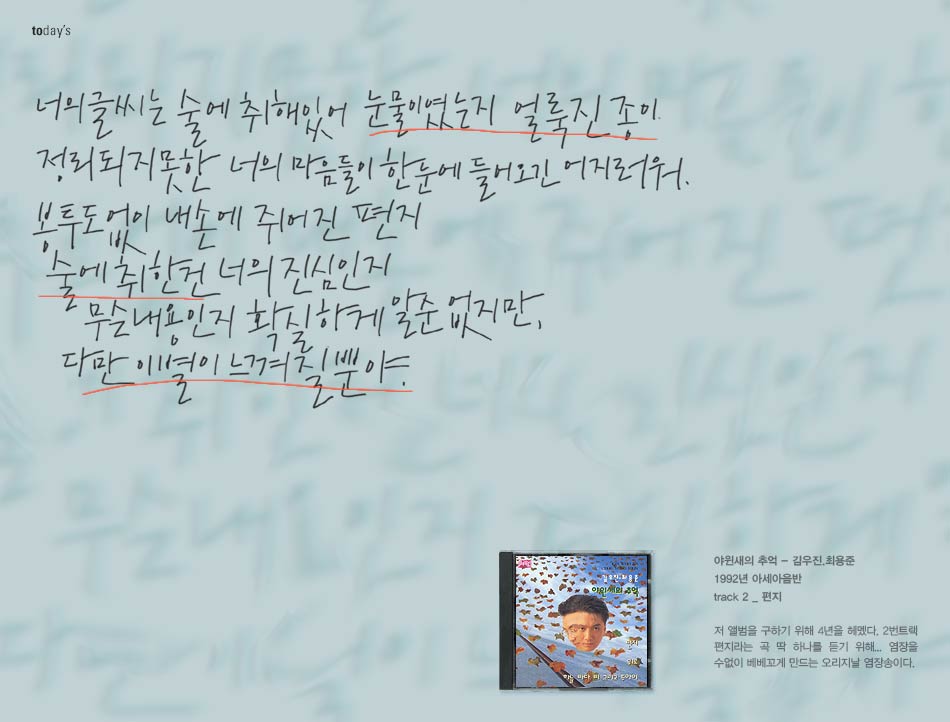 today's
너의 글씨는 술에 취해있어 눈물이였는지 얼룩진 종이.
정리되지못한 너의 마음들이 한눈에 들어오긴 어지러워.
봉투도 없이 내손에 쥐어진 편지
술에 취한건 너의 진심인지
무슨내용인지 확실하게 알순 없지만,
다만 이별이 느껴질뿐야.
김우진.최용준
야윈새의 추억
편지
야윈새의 추억 - 김우진.최용준
1992년 아세아음반
track 2 _ 편지
저 앨범을 구하기 위해 4년을 헤멨다. 2번트랙
편지라는 곡 딱 하나를 듣기 위해... 염장을
수없이 베베꼬게 만드는 오리지날 염장송이다.